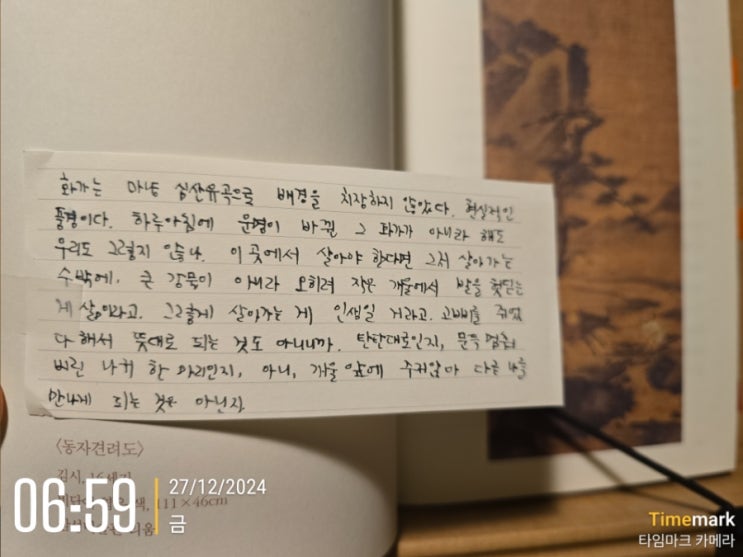 화가는 마냥 심산유곡으로 배경을 치장하지 않았다. 현실적인
풍경이다. 하루아침에 운명이 바뀐 그 화가가 아니라 해도
우리도 그렇지 않을까. 이 곳에서 살아야 한다면 그저 살아가는
수밖에. 큰 강물이 아니라 오히려 작은 개울에서 발을 헛딛는
게 삶이라고. 그렇게 살아가는 게 인생일 거라고. 고삐를 쥐었
다 해서 뜻대로 되는 것도 아니니까. 탄탄대로인지, 문득 멈춰
버린 나귀 한 마리인지, 아니, 개울 앞에 주저앉아 다른 나를
만나게 되는 것은 아닌지
<동자견려도>
김시, 16세기
색, 111×46cm
06:59
27/12/2024
금
Timemark
타임마크 카메라